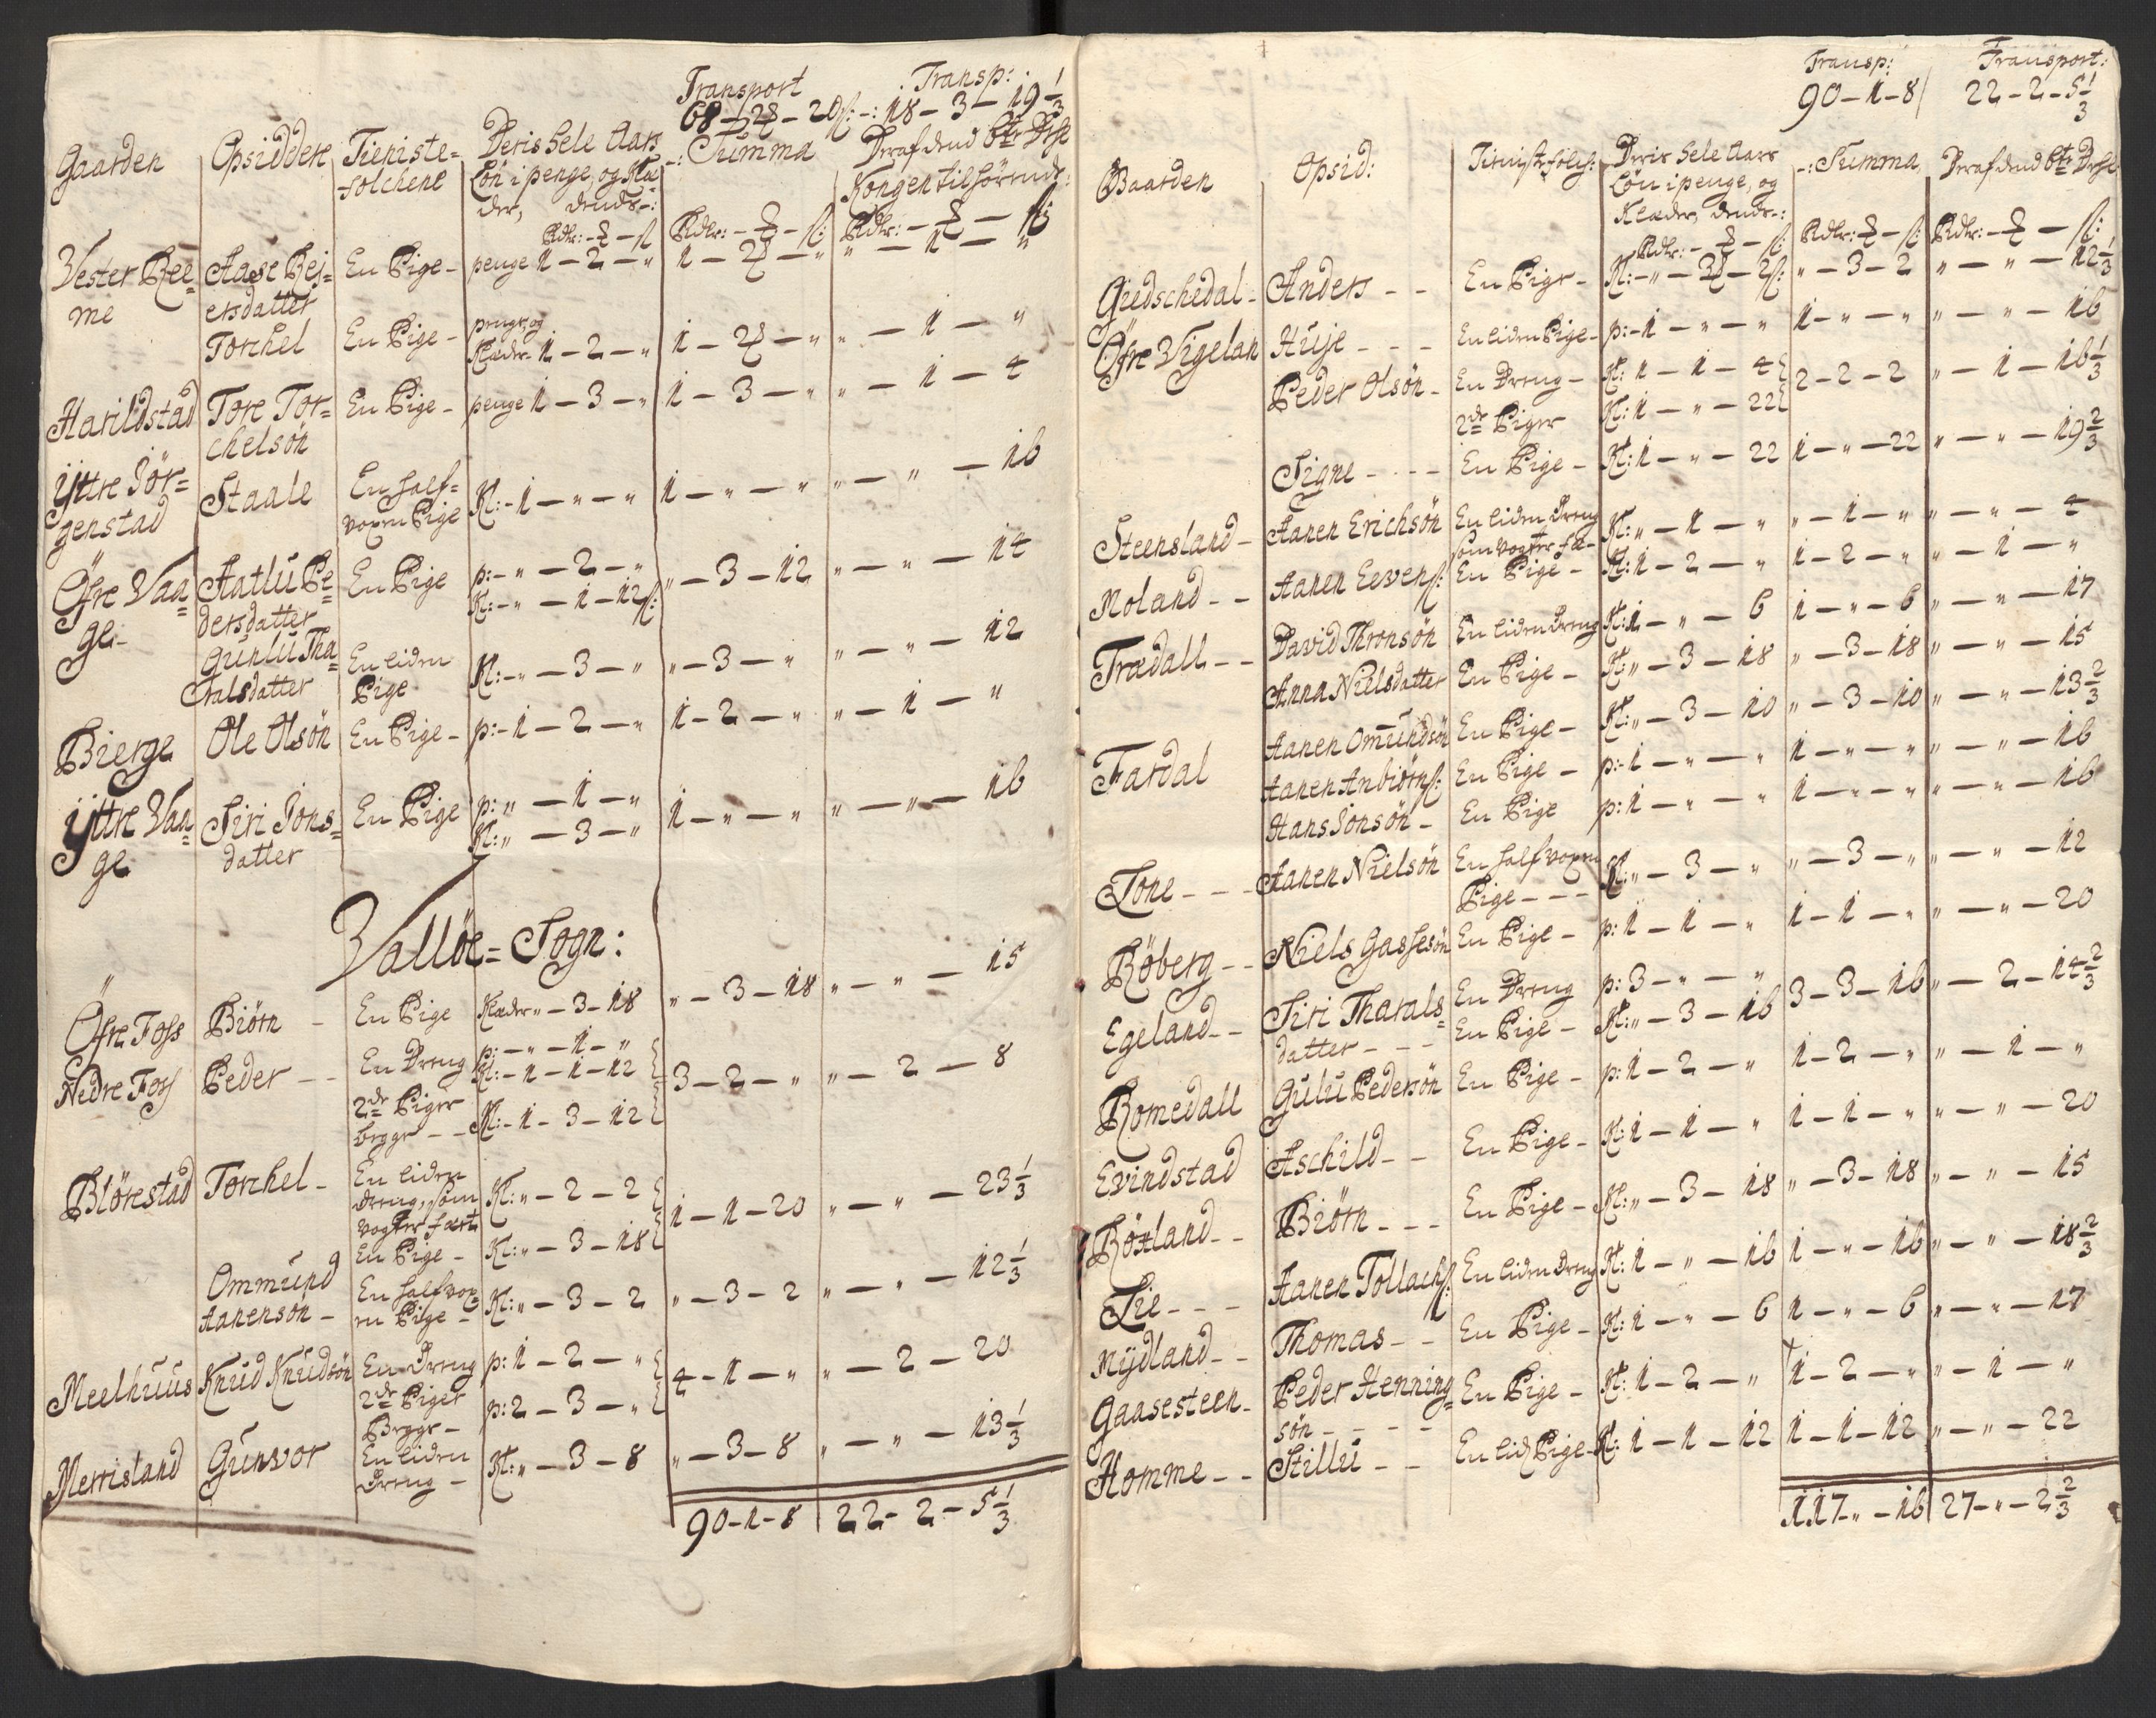 Transport Transp:
68 – 2 ȝ – 20 ß: –: 18 – 3 – 19 1/3
Gaarden | Opsiddere | Tieniste= | Deris hele Aars –: Summa | Deraf dend 6te Deel
folchene | Lön i penge, og Klæ= | Kongen tilhörende:
der, dends –:
Rdlr: – ȝ – ß | Rdlr: – ȝ – ß: | Rdlr: – ȝ – ß
Vester Ree= | Aase Rej= | En Pige – | penge 1 – 2 – " | 1 – 2 ȝ – " | " – 1 – "
me | ersdatter
Torchel | En Pige – | penge, og
Klæder – 1 – 2 – " | 1 – 2 ȝ – " | " – 1 – "
Harildstad | Tore Tor= | En Pige – | penge 1 – 3 – " | 1 – 3 – " | " – 1 – 4
chelsön
Ÿttre Jör= | Staale | En half= | Kl: – 1 – " – " | 1 – " – " | " – " – 16
genstad | voxen Pige
Öfre Vaa= | Aatlu Pe= | En Pige | p: – " – 2 – "
ge – | dersdatter | Kl: – " – 1 – 12 ß: | " – 3 – 12 | " – " – 14
Gunlu Tha= | En liden | Kl: – " – 3 – " | " – 3 – " | " – " – 12
ralsdatter | Pige
Bierge | Ole Olsön | En Pige – | p: – 1 – 2 – " | 1 – 2 – " | " – 1 – "
Ÿttre Vaa= | Siri Jons= | En Pige | p: " – 1 – "
ge | datter | Kl: " – 3 – " | 1 – " – " | " – " – 16
Vallöe = Sogn:
Öfre Foss | Biörn – | En Pige | Klæder " – 3 – 18 | " – 3 – 18 | " – " – 15
Nedre Foss | Peder – – | En Dreng | p: – " – 1 – "
Kl: – 1 – 1 – 12 | 3 – 2 – " | " – 2 – 8
2de Piger
begge – – | Kl: – 1 – 3 – 12
Blörestad | Torchel – | En liden
Dreng, som | Kl: " – 2 – 2
vogter fæet | 1 – 1 – 20 | " – " – 23 1/3
En Pige – | Kl: " – 3 – 18
Ommund | En half vox=
Aanensön – | en Pige – | Kl: " – 3 – 2 | " – 3 – 2 | " – " – 12 1/3
Meelhuus | Knud Knudsön | En Dreng | p: 1 – 2 – " | 4 – 1 – " | " – 2 – 20
2de Piger | p: 2 – 3 – "
Begge –
Merrisland | Gunvor | En liden | Kl: " – 3 – 8 | " – 3 – 8 | " – " – 13 1/3
Dreng –
90 – 1 – 8 | 22 – 2 – 5 1/3
Transp: Transport:
90 – 1 – 8 | 22 – 2 – 5 1/3
Gaarden | Opsid: | Tienistefolch: | Deris hele Aars | –: Summa | Deraf dend 6te Deel
Lön i penge, og
Klæder, dends –:
Rdlr: – ȝ – ß: | Rdlr: – ȝ – ß: | Rdlr: – ȝ – ß:
Giedschedal – | Anders – – | En Pige – | Kl: – " – 3 ȝ – 2 ß: | " – 3 – 2 | " – " – 12 1/3
Öfre Vigelan | Huje – – – | En liden Pige – | p: – 1 – " – " | 1 – " – " | " – " – 16
Peder Olsön – | En Dreng – | Kl: 1 – 1 – 4 | 2 – 2 – 2 | " – 1 – 16 1/3
2de Piger | Kl: 1 – " – 22
Signe – – – | En Pige – | Kl: 1 – " – 22 | 1 – " – 22 | " – " – 19 2/3
Steensland – | Aanen Erichsön | En liden Dreng | Kl: " – 1 – " | " – 1 – " | " – " – 4
som vogter fæ –
Moland – – | Aanen Eevens: | En Pige – | Kl: 1 – 2 – " | 1 – 2 – " | " – 1 – "
Trædall – – | David Thronsön | En liden Dreng | Kl: 1 – " – 6 | 1 – " – 6 | " – " – 17
Anna Nielsdatter | En Pige – | Kl: " – 3 – 18 | " – 3 – 18 | " – " – 15
Fardal | Aanen Omundsön | En Pige – | Kl: " – 3 – 10 | " – 3 – 10 | " – " – 13 2/3
Aanen Anbiörns: | En Pige – | p: 1 – " – " | 1 – " – " | " – " – 16
Hans Jonsön – | En Pige | p: 1 – " – " | 1 – " – " | " – " – 16
Tone – – – | Aanen Nielsön | En half voxen | Kl: " – 3 – " | " – 3 – " | " – " – 12
Pige – – –
Röberg – – | Niels Gassesön | En Pige – | p: 1 – 1 – " | 1 – 1 – " | " – " – 20
Egeland – – | Siri Tharals= | En Dreng | p: 3 – " – " | 3 – 3 – 16 | " – 2 – 14 2/3
datter – – – | En Pige – | Kl: " – 3 – 16
Romedall | Gulu Pedersön | En Pige – | p: 1 – 2 – " | 1 – 2 – " | " – 1 – "
Evindstad | Aschild – – | En Pige – | Kl: 1 – 1 – " | 1 – 1 – " | " – " – 20
Röxland – – | Biörn – – – | En Pige – | Kl: " – 3 – 18 | " – 3 – 18 | " – " – 15
Lie – – – | Aanen Tollachs: | En liden Dreng | Kl: 1 – " – 16 | 1 – " – 16 | " – " – 18 2/3
Nÿdland – – | Thomas – – | En Pige – | Kl: 1 – " – 6 | 1 – " – 6 | " – " – 17
Gaasesteen – | Peder Henning= | En Pige – | Kl: 1 – 2 – " | 1 – 2 – " | " – 1 – "
sön – – – –
Homme – – | Stillu – – | En lid: Pige – | Kl: 1 – 1 – 12 | 1 – 1 – 12 | " – " – 22
117 – " – 16 | 27 – " – 2 2/3